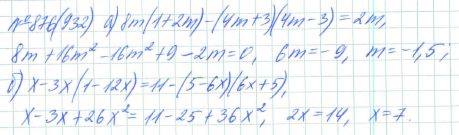 №876(932) а) 8m(1+2m)-(4m+3)(4m-3)=2m,
8m+16m²-16m²+9-2m=0, 6m=-9, m=-1,5;
б) x-3x(1-12x)=11-(5-6x)(6x+5),
x-3x+26x²=11-25+36x², 2x=14, x=7.